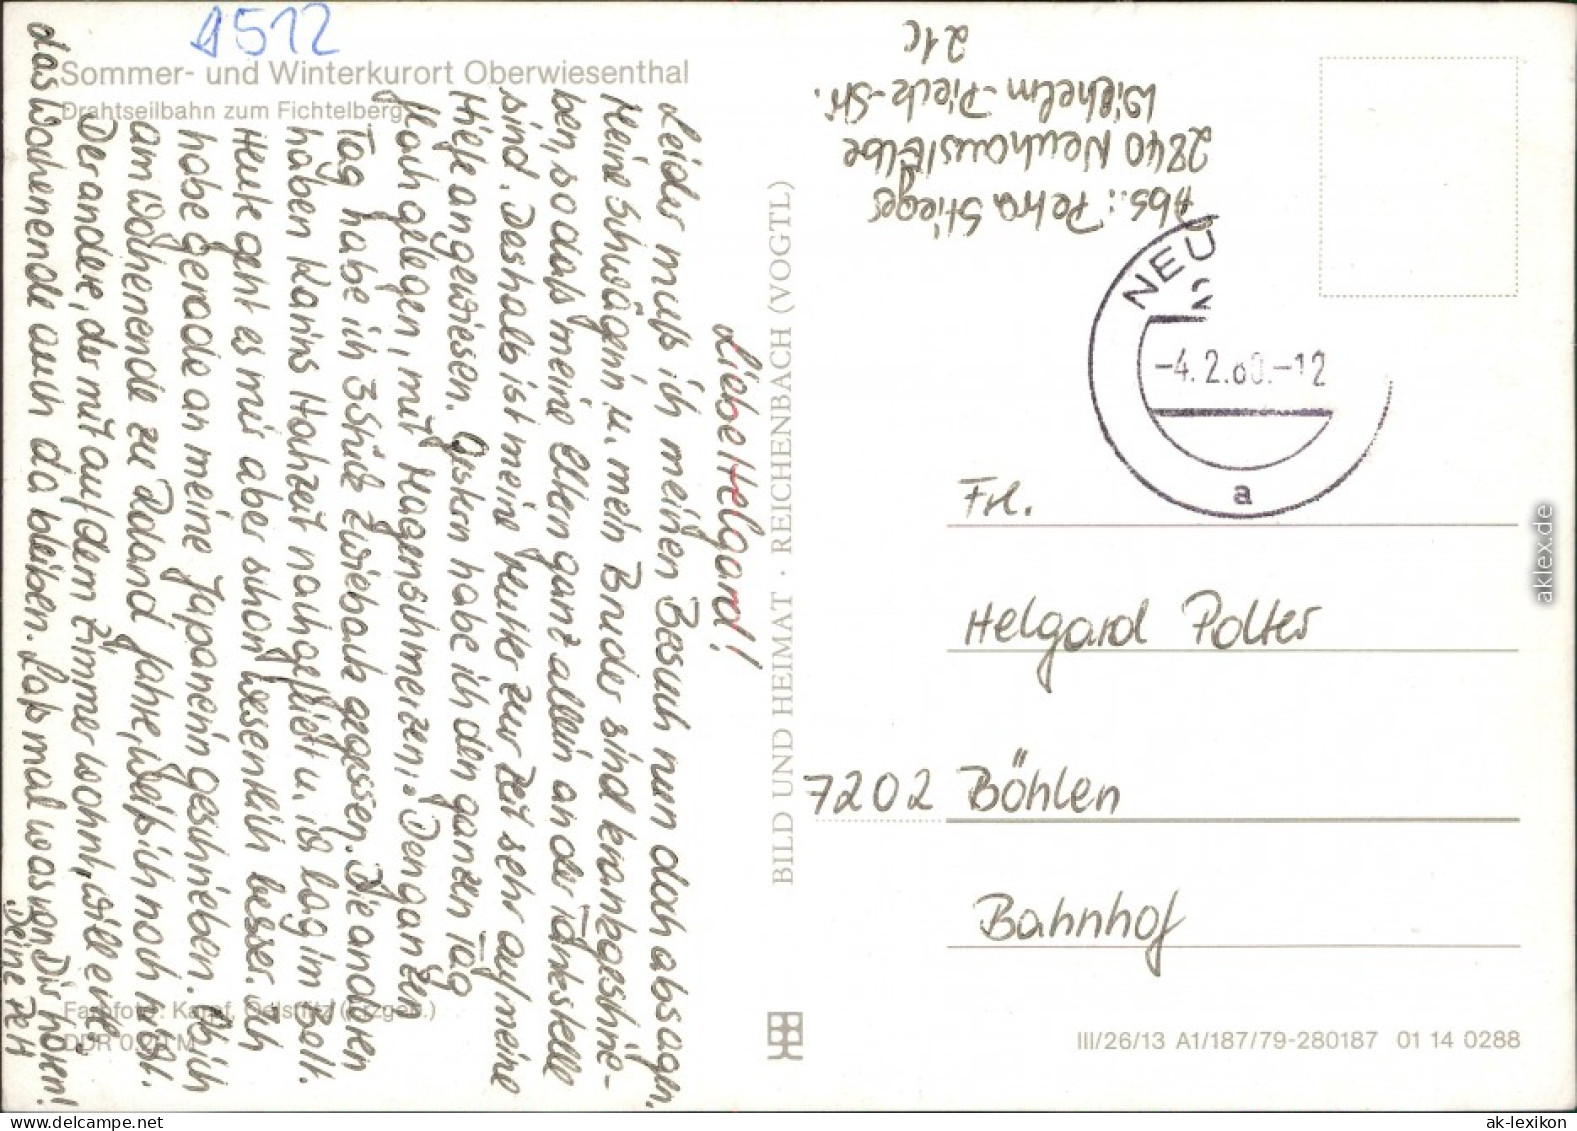 1512
Sommer- und Winterkurort Oberwiesenthal
Drahtseilbahn zum Fichtelberg
Liebe Helgard!
Leider muß ich meinen Besuch nun doch absagen.
Meine Schwägerin u. mein Bruder sind krankgeschrie-
ben, so daß meine Eltern ganz allein an der Tankstelle
sind. Deshalb ist meine Mutter zur Zeit sehr auf meine
Hilfe angewiesen. Gestern habe ich den ganzen Tag
flach gelegen, mit Magenschmerzen. Den ganzen
Tag habe ich 3 Stück Zwieback gegessen. Die anderen
haben Karins Hochzeit nachgefeiert u. ich lag im Bett.
Heute geht es mir aber schon wesentlich besser. Ich
habe gerade an meine Japanerin geschrieben. Ob ich
am Wochenende zu Roland fahre, weiß ich noch nicht.
Der andere, der mit auf dem Zimmer wohnt, will
das Wochenende auch da bleiben. Laß mal was von Dir hören!
Deine Petra
Farbfoto: Kampf, (Erzgeb.)
DDR 0,20 M
BILD UND HEIMAT · REICHENBACH (VOGTL)
Abs.: Petra Stieger
2840 Neuhaus/Elbe
Wilhelm-Pieck-Str.
21c
NEU
-4.2.80.-12
a
Frl.
Helgard Polter
7202 Böhlen
Bahnhof
III/26/13 A1/187/79-280187 01 14 0288
aklex.de
ak-lexikon